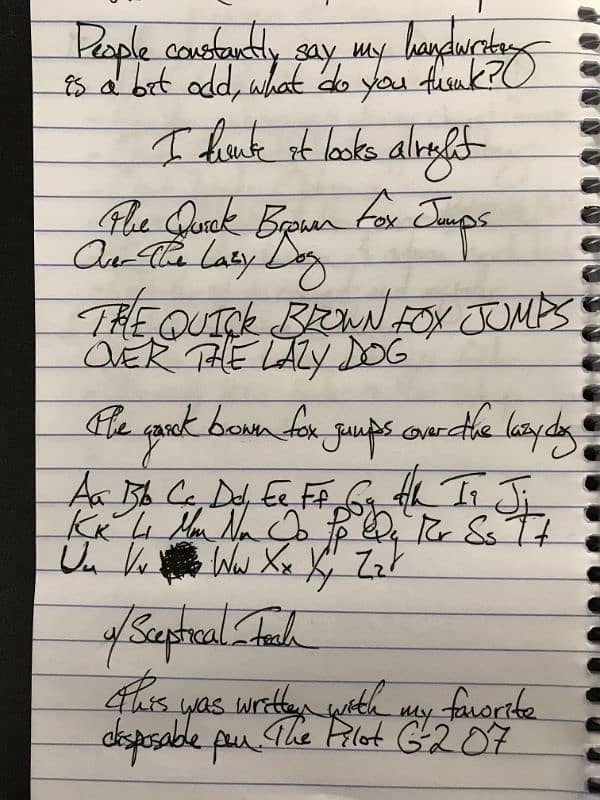 People constantly say my handwriting
is a bit odd, what do you think?
I think it looks alright
The Quick Brown Fox Jumps
Over The Lazy Dog
THE QUICK BROWN FOX JUMPS
OVER THE LAZY DOG
The quick brown fox jumps over the lazy dog
Aa Bb Cc Dd Ee Ff Gg Hh Ii Jj
Kk Ll Mm Nn Oo Pp Qq Rr Ss Tt
Uu Vv Ww Xx Yy Zz
u/Sceptical_Teah
This was written with my favorite
disposable pen. The Pilot G-2 07